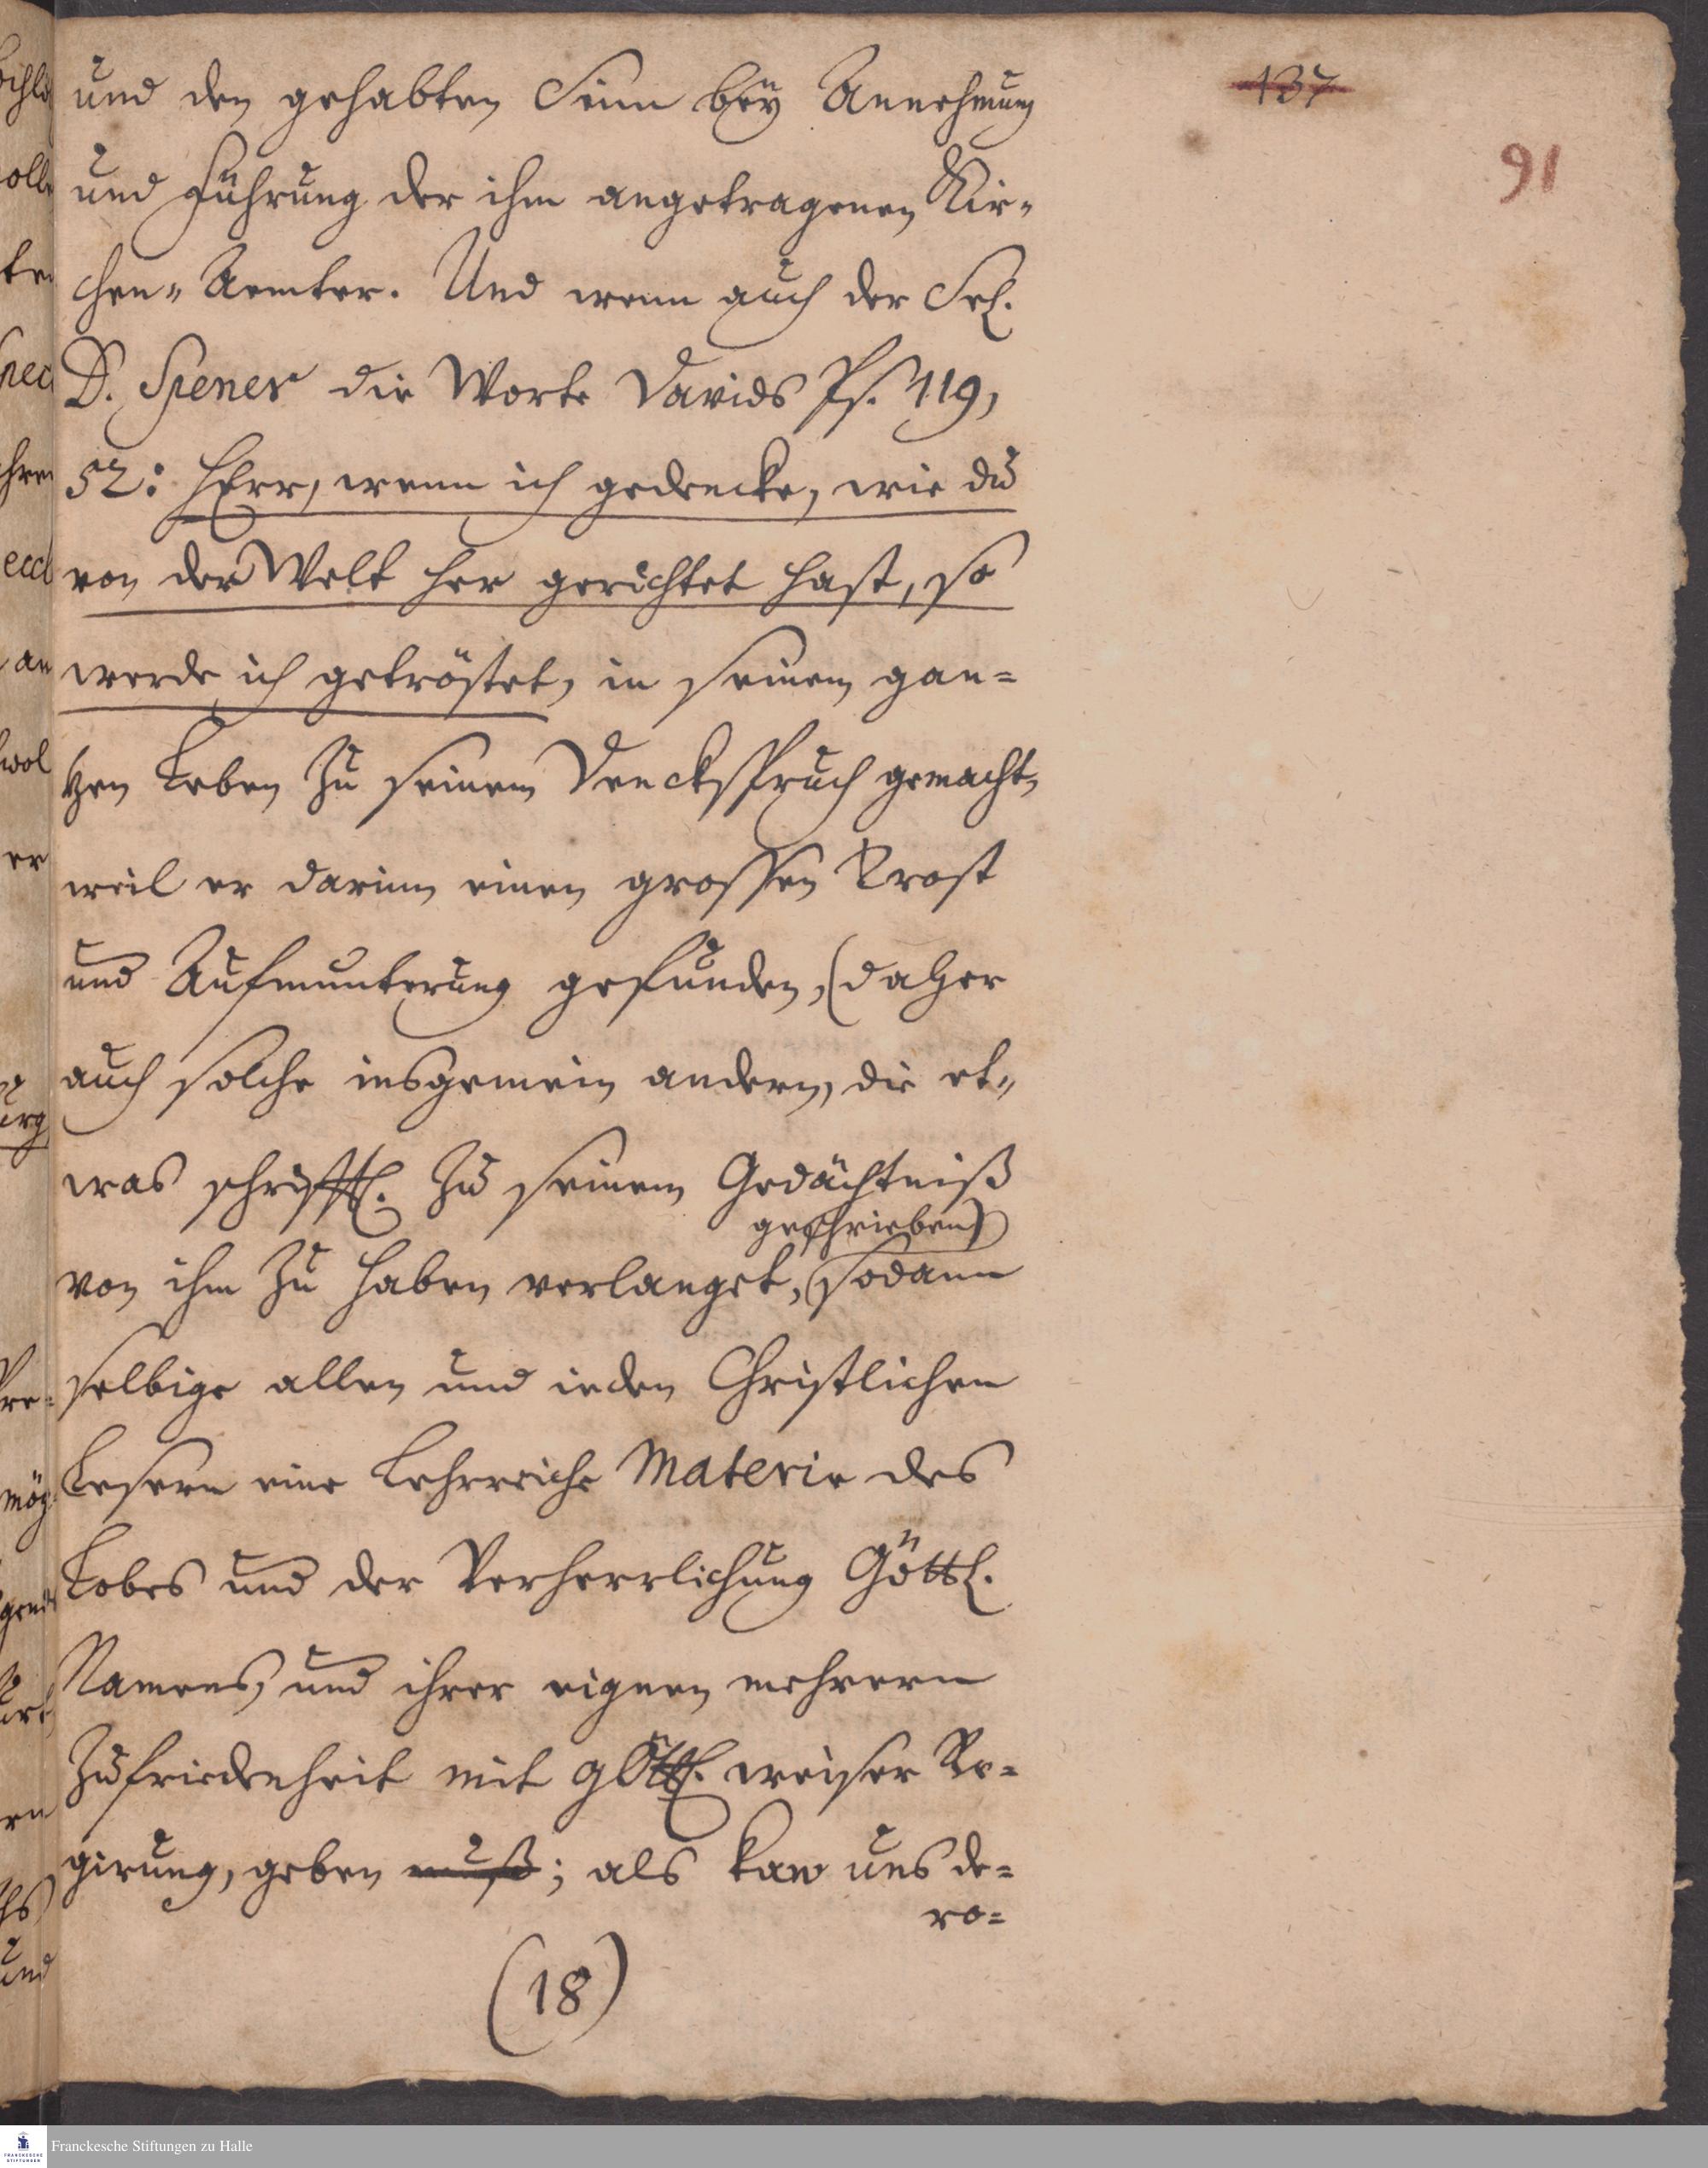 137
91
und den gehabten Sinn bey Annehmung
und Führung der ihm angetragenen Kir-
chen-Aemter. Und wenn auch der Sel.
D. Spener die Worte Davids Ps. 119,
52: HErr, wenn ich gedencke, wie du
von der Welt her gerichtet hast, so
werde ich getröstet, in seinem gan=
tzen Leben zu seinem Denckspruch gemacht,
weil er darinn einen grossen Trost
und Aufmunterung gefunden, (daher
auch solche insgemein andern, die et-
was schrifftl. zu seinem Gedächtniß
geschrieben)
von ihm zu haben verlanget, sodann
selbige allen und ieden Christlichen
Lesern eine Lehrreiche Materie des
Lobes und der Verherrlichung Göttl.
Namens, und ihrer eignen mehrern
Zufriedenheit mit göttl. weiser Re=
girung, geben muß; als kan uns de=
ro=
(18)
Franckesche Stiftungen zu Halle